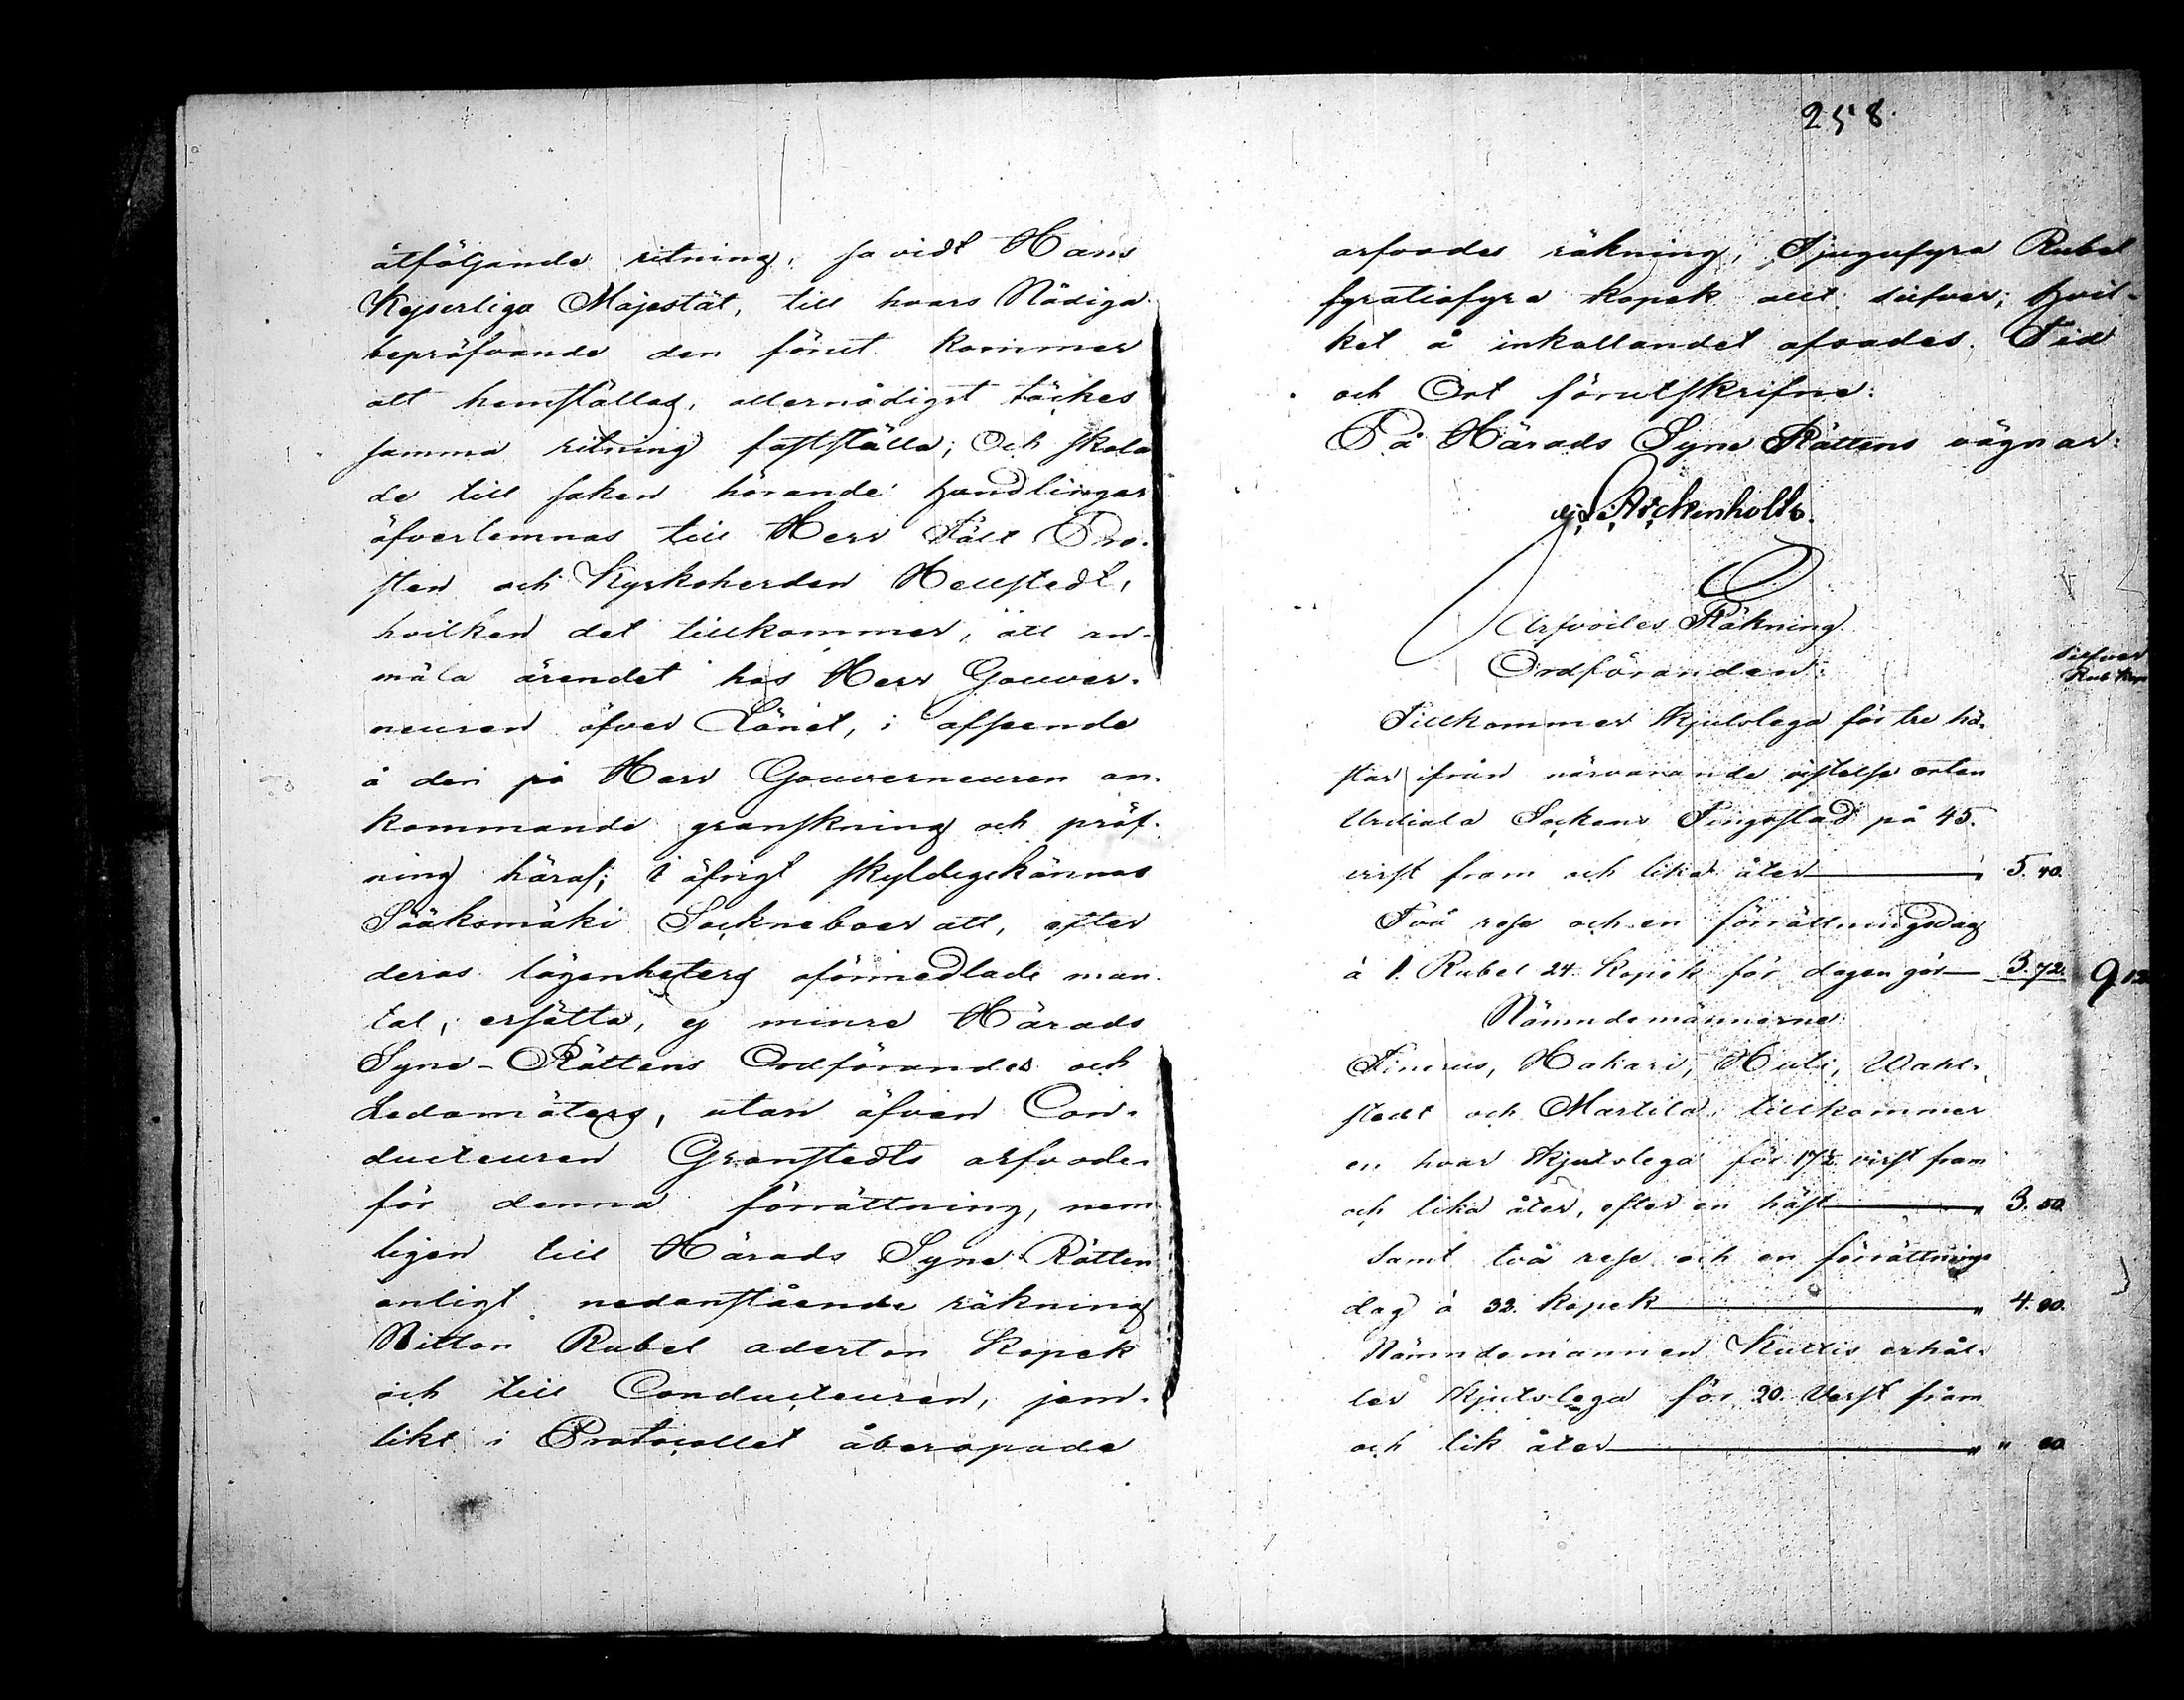 åtföljande ritning, så vidt Hans
Kejserliga Majestät, till hvars Nådiga
bepröfvande den förut kommer
att hemställas, allernådigst täckes
samma ritning fastställa; Och skola
de till saken hörande handlingar
öfverlemnas till Herr Fält Pro-
sten och Kyrkoherden Hellstedt,
hvilken det tillkommer, att an-
mäla ärendet hos Herr Gouver-
neuren öfver Länet, i afseende
å den på Herr Gouverneuren an-
kommande granskning och pröf-
ning häraf; I öfrigt skyldigkännas
Sääksmäki Sockneboer att, efter
deras lägenheters oförmedlade man-
tal, ersätta, ej minre Härads
Syne-Rättens Ordförandes och
Ledamöters, utan äfven Con-
ducteuren Granstedts arfvode
för denna förrättning, nem-
ligen till Härads Syne-Rätten
enligt nedanstående räkning
Nitton Rubel aderton Kopek
och till Conducteuren, jem-
likt i Protocollet åberopade
258.
arfvodes räkning, Tjugufyra Rubel
fyratiofyra kopek allt silfver; hvil-
ket å inkallandet afsades. Tid
och Ort förutskrifne:
På Härads Syne Rättens vägnar:
Arckenholtz.
Arfvodes Räkning.
Ordföranden:
Silfver
Rub Kop
Tillkommer skjutslega för tre hä-
star ifrån närvarande vistelse orten
Urdiala Sockens Tingsstad på 45.
virst fram och lika åter " 5. 40.
Två rese och en förrättningsdag
à 1. Rubel 24. Kopek för dagen gör 3. 72. 9.12
Nämndemännerne:
Finerus, Hakari, Huti, Wahl-
stedt och Martila, tillkommer
en hvar skjutslega för 17½ virst fram
och lika åter, efter en häst " 3. 50.
Samt två rese och en förrättnings
dag à 32. Kopek " 4. 80.
Nämndemannen Kuttis erhål-
ler skjutslega för 20. Verst fram
och lik åter " " 80